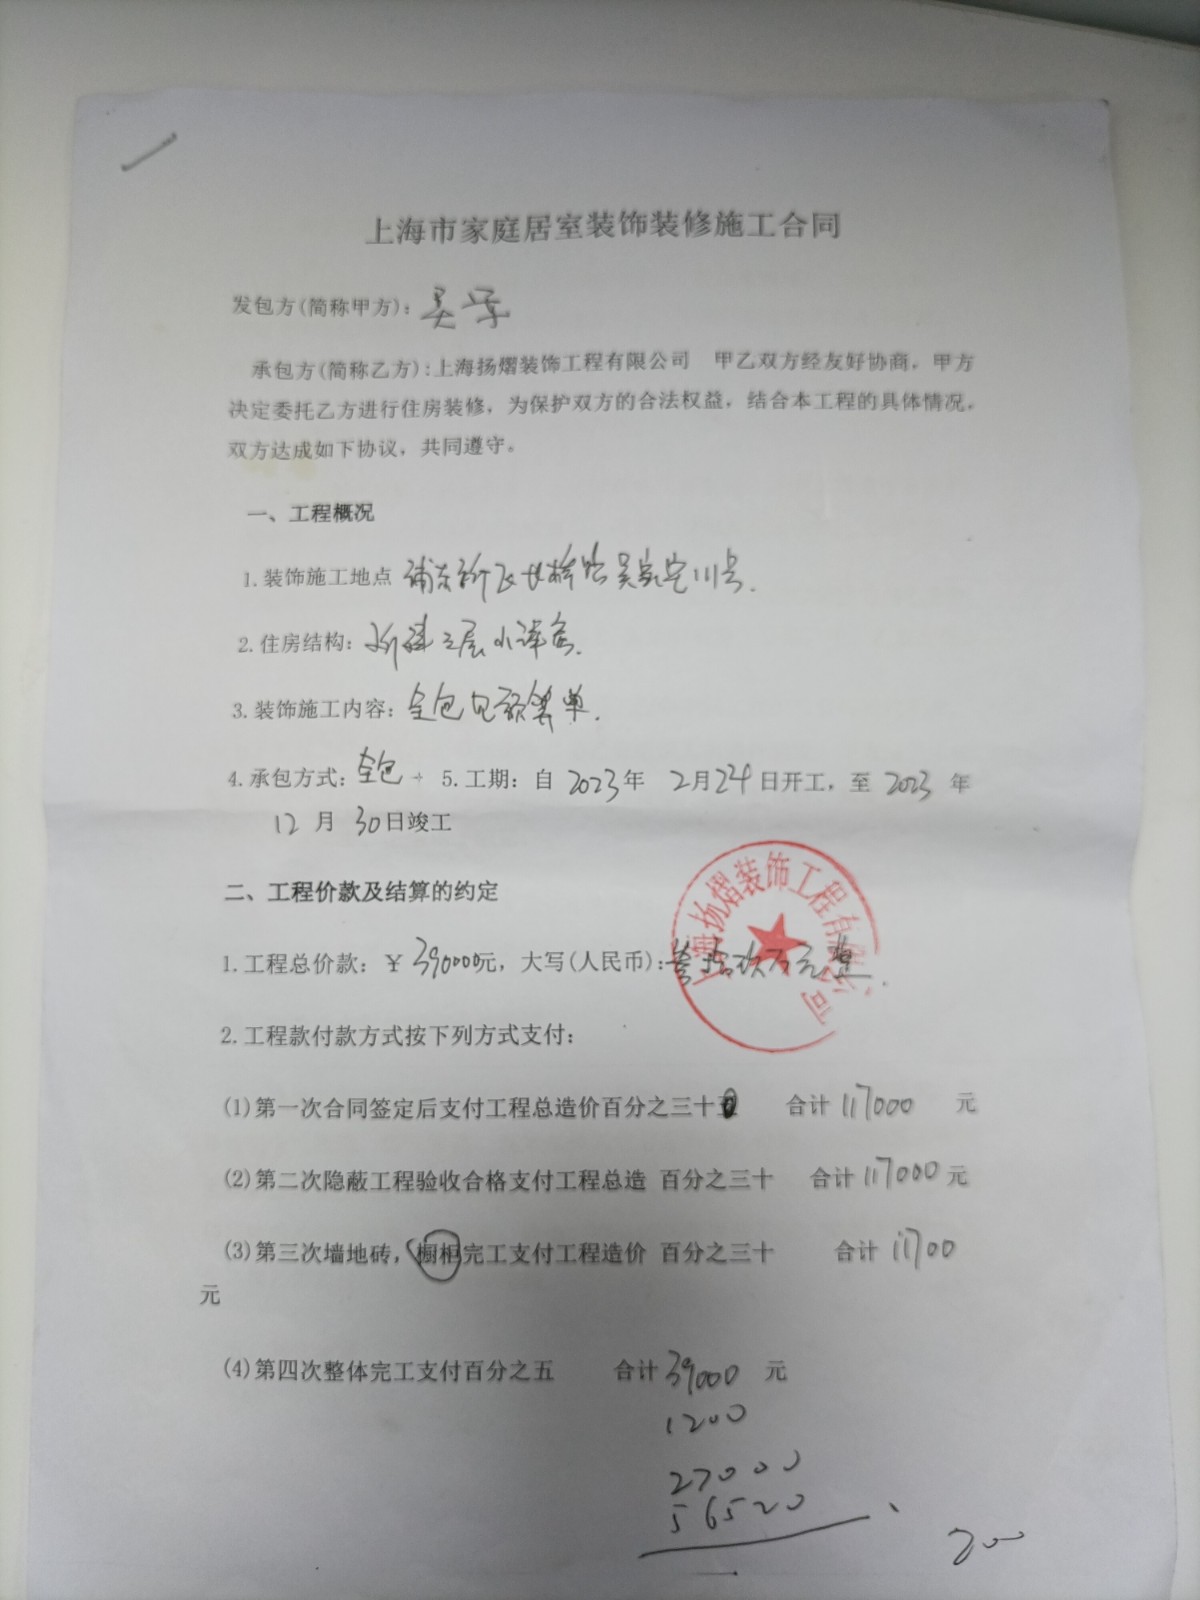 上海市家庭居室装饰装修施工合同
发包方(简称甲方):
承包方(简称乙方):上海扬熠装饰工程有限公司 甲乙双方经友好协商，甲方
决定委托乙方进行住房装修，为保护双方的合法权益，结合本工程的具体情况，
双方达成如下协议，共同遵守。
一、工程概况
1.装饰施工地点 浦东新区 吴家宅111号.
2.住房结构: 新建三层小洋房.
3.装饰施工内容: 全包见预算单.
4.承包方式: 全包 5.工期: 自 2023年 2月24日开工，至 2023 年
12 月 30日竣工
二、工程价款及结算的约定
上海扬熠装饰工程有限公司
1.工程总价款: ¥ 390000元，大写(人民币): 叁拾玖万元整.
2.工程款付款方式按下列方式支付:
(1)第一次合同签定后支付工程总造价百分之三十 合计 117000 元
(2)第二次隐蔽工程验收合格支付工程总造 百分之三十 合计 117000 元
(3)第三次墙地砖，橱柜完工支付工程造价 百分之三十 合计 11700
元
(4)第四次整体完工支付百分之五 合计 39000 元
1200
27000
56520
200